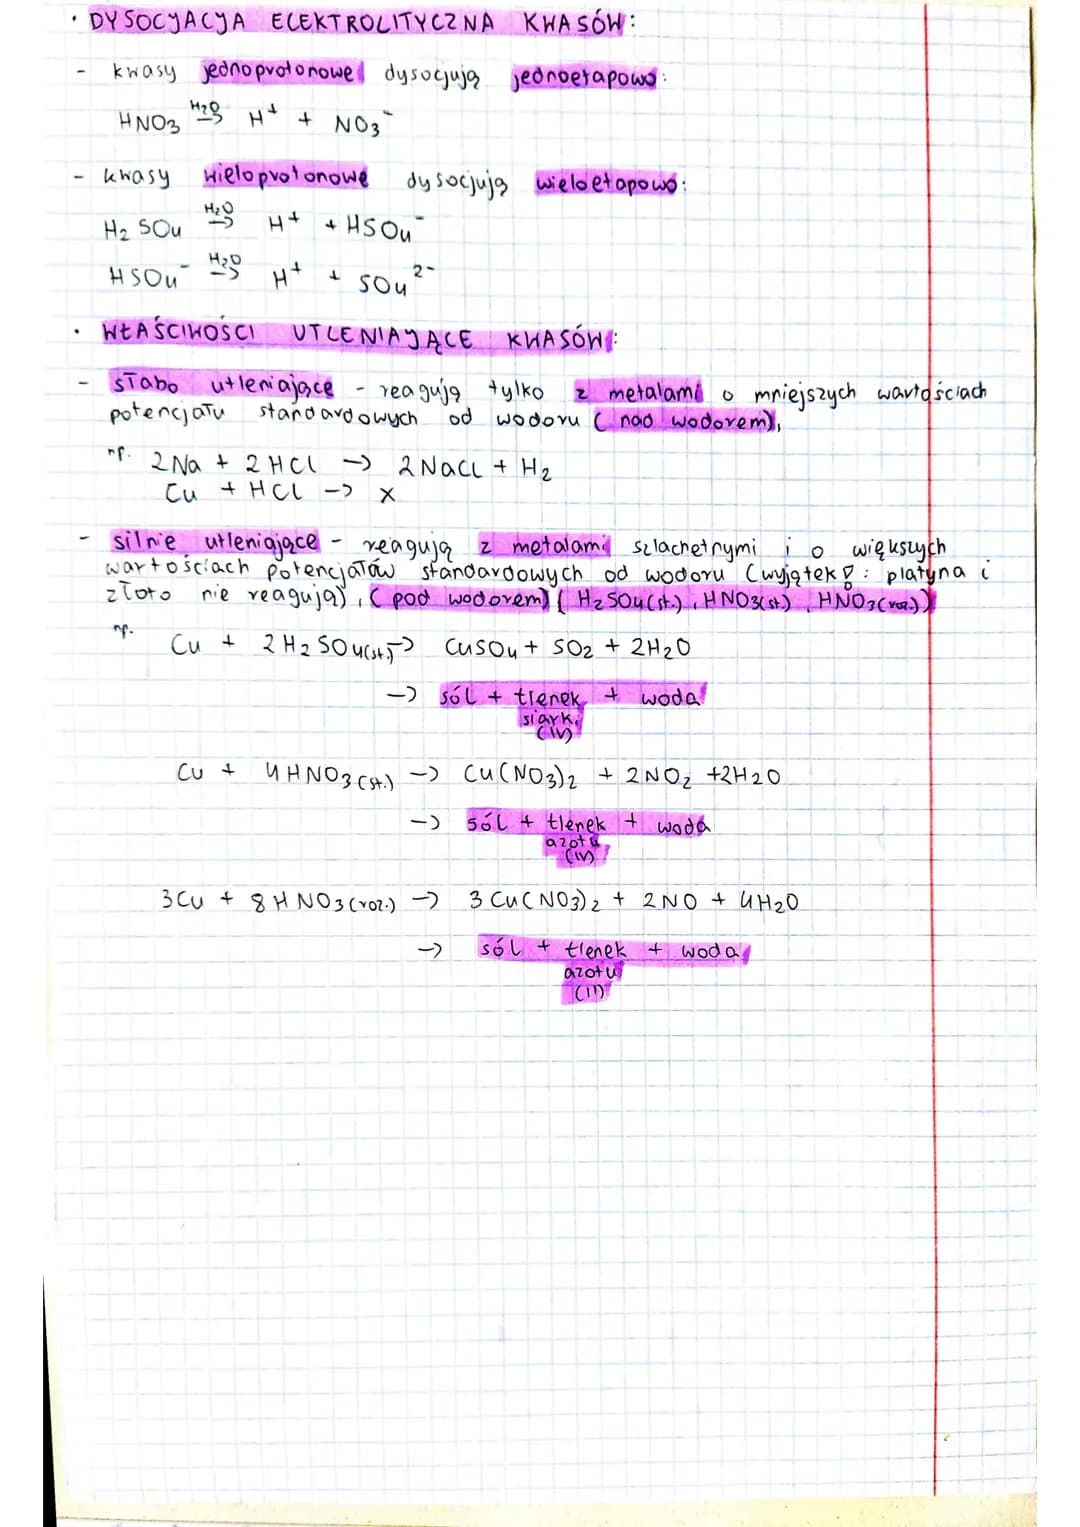 • DYSOCJACJA ELEKTROLITYCZNA KWASÓW:
- kwasy jednoprotonowe dysocjują jednoetapowo:
HNO3 H2O→ H+ + NO3-
- kwasy wieloprotonowe dysocjują wieloetapowo:
H2SO4 H2O→ H+ + HSO4-
HSO4- H2O→ H+ + SO4 2-
• WŁAŚCIWOŚCI UTLENIAJĄCE KWASÓW:
- słabo utleniające - reagują tylko z metalami o mniejszych wartościach
potencjału standardowych od wodoru (nad wodorem),
np. 2Na + 2HCl -> 2NaCl + H2
Cu + HCl -> x
- silnie utleniające - reagują z metalami szlachetnymi i o większych
wartościach potencjałów standardowych od wodoru (wyjątek!: platyna i
złoto nie reagują), (pod wodorem) (H2SO4(st.), HNO3(st.), HNO3(roz.))
np. Cu + 2H2SO4(st.) -> CuSO4 + SO2 + 2H2O
-> sól + tlenek + woda
siarki
(IV)
Cu + 4HNO3(st.) -> Cu(NO3)2 + 2NO2 +2H2O
-> sól + tlenek + woda
azotu
(IV)
3Cu + 8HNO3(roz.) -> 3Cu(NO3)2 + 2NO + 4H2O
-> sól + tlenek + woda
azotu
(II)